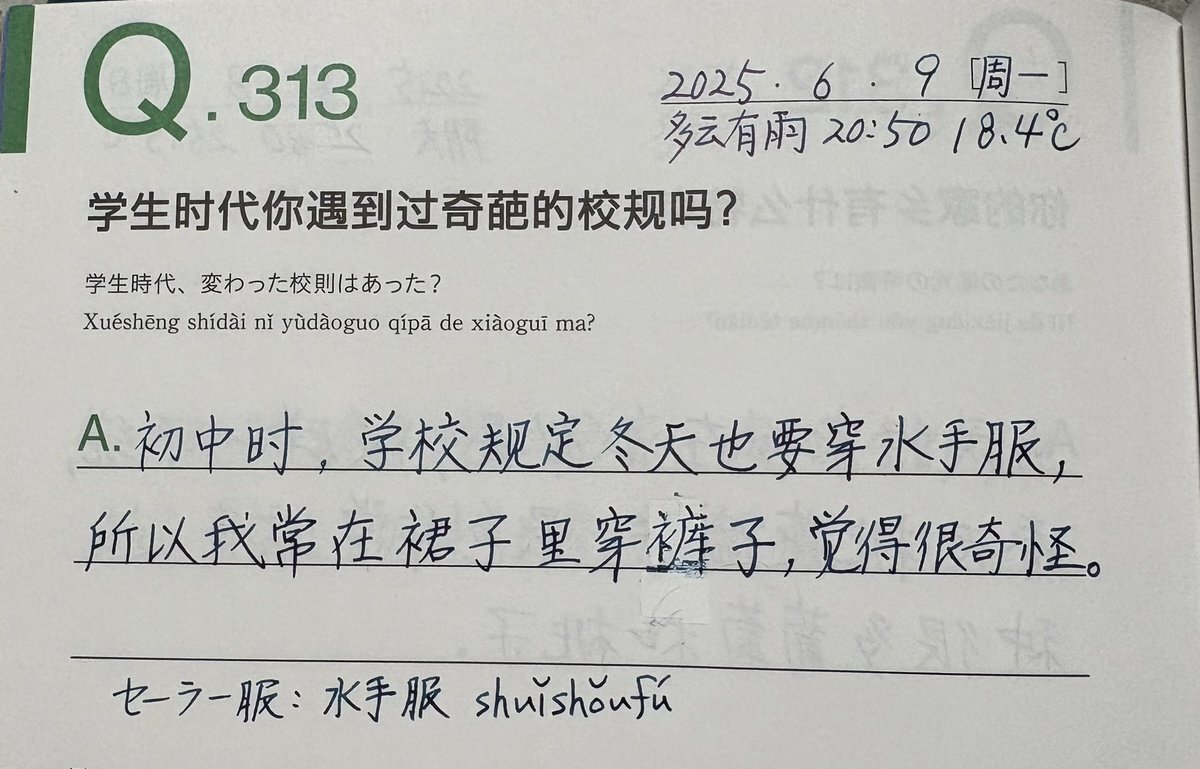 Q.313
2025.6.9[周一]
多云有雨 20:50 18.4℃
学生时代你遇到过奇葩的校规吗?
学生時代、変わった校則はあった?
Xuéshēng shídài nǐ yùdàoguo qípā de xiàoguī ma?
A. 初中时,学校规定冬天也要穿水手服,
所以我常在裙子里穿裤子,觉得很奇怪。
セーラー服:水手服 shuǐshǒufú